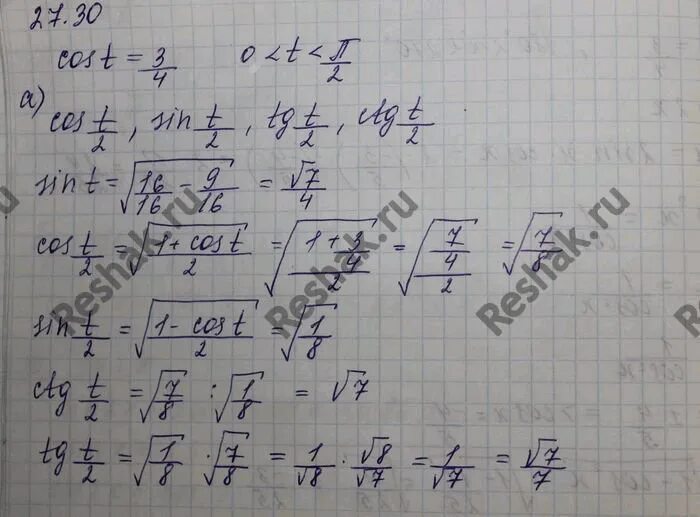 27.30
cos t = 3/4 0 < t < π/2
а) cos t/2 , sin t/2 , tg t/2 , ctg t/2
sin t = √(16/16 - 9/16) = √7/4
cos t/2 = √((1 + cos t)/2) = √((1 + 3/4)/2) = √((7/4)/2) = √(7/8)
sin t/2 = √((1 - cos t)/2) = √(1/8)
ctg t/2 = √(7/8) : √(1/8) = √7
tg t/2 = √(1/8) · √(7/8) = 1/√8 · √8/√7 = 1/√7 = √7/7
Reshak.ru
Reshak.ru
Reshak.ru